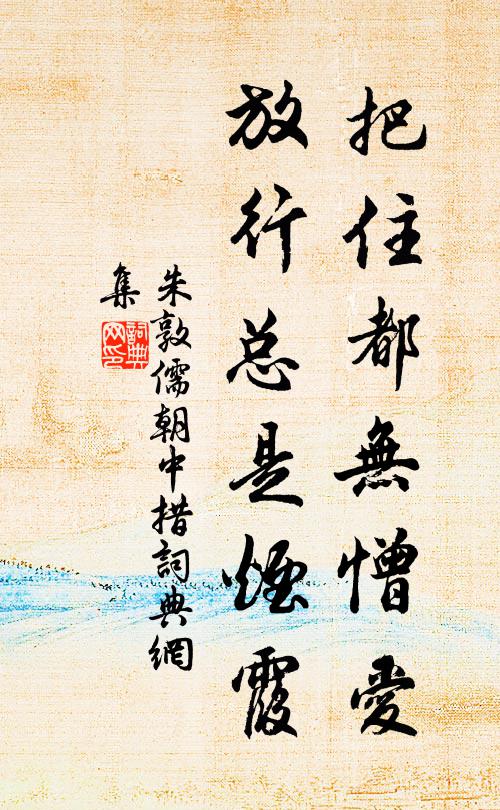 把住都無憎愛
放行总是煙霞
朱敦儒朝中措詞典網
集
詞典网印